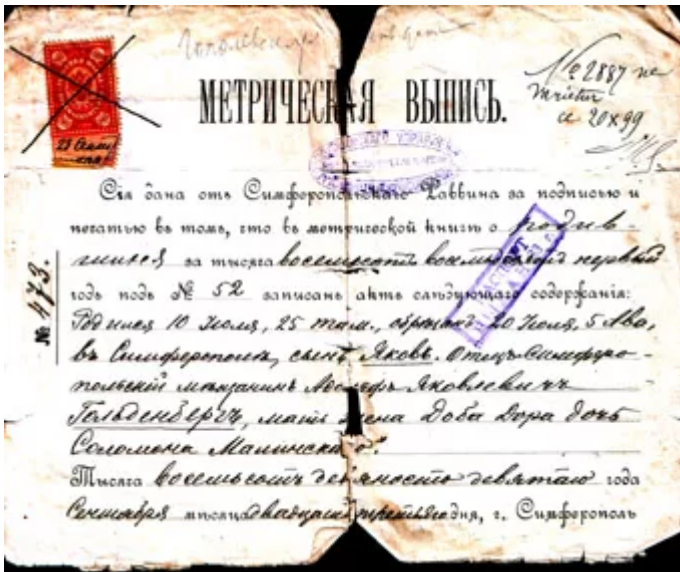 № 2887
20 X 99
МЕТРИЧЕСКАЯ ВЫПИСЬ.
23 Сент
Сія дана отъ Симферопольскаго Раввина за подписью и
печатью въ томъ, что въ метрической книгѣ о родив-
шихся за тысяча восемьсотъ восемьдесятъ первый
годъ подъ № 52 записанъ актъ слѣдующаго содержанія:
№ 473.
Родился 10 Іюля, 25 там., обрѣзанъ 20 Іюля, 5 Ава,
въ Симферополѣ, сынъ Яковъ. Отецъ Симферо-
польскій мѣщанинъ Адольфъ Яковлевичъ
Гольденбергъ, мать жена Доба Дора дочь
Соломона Малинскаго.
Тысяча восемьсотъ девяносто девятаго года
Сентября мѣсяца двадцать третьяго дня, г. Симферополь